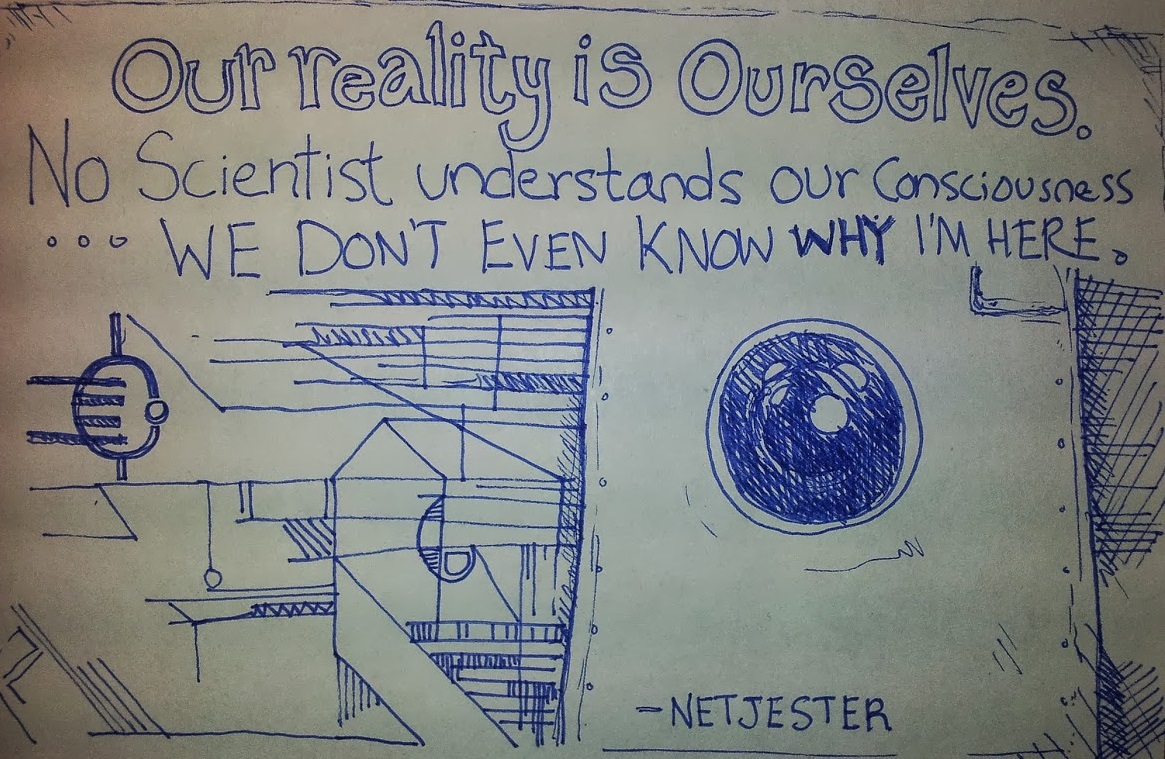 Our reality is Ourselves.
No Scientist understands our Consciousness
... WE DON'T EVEN KNOW WHY I'M HERE.
-NETJESTER